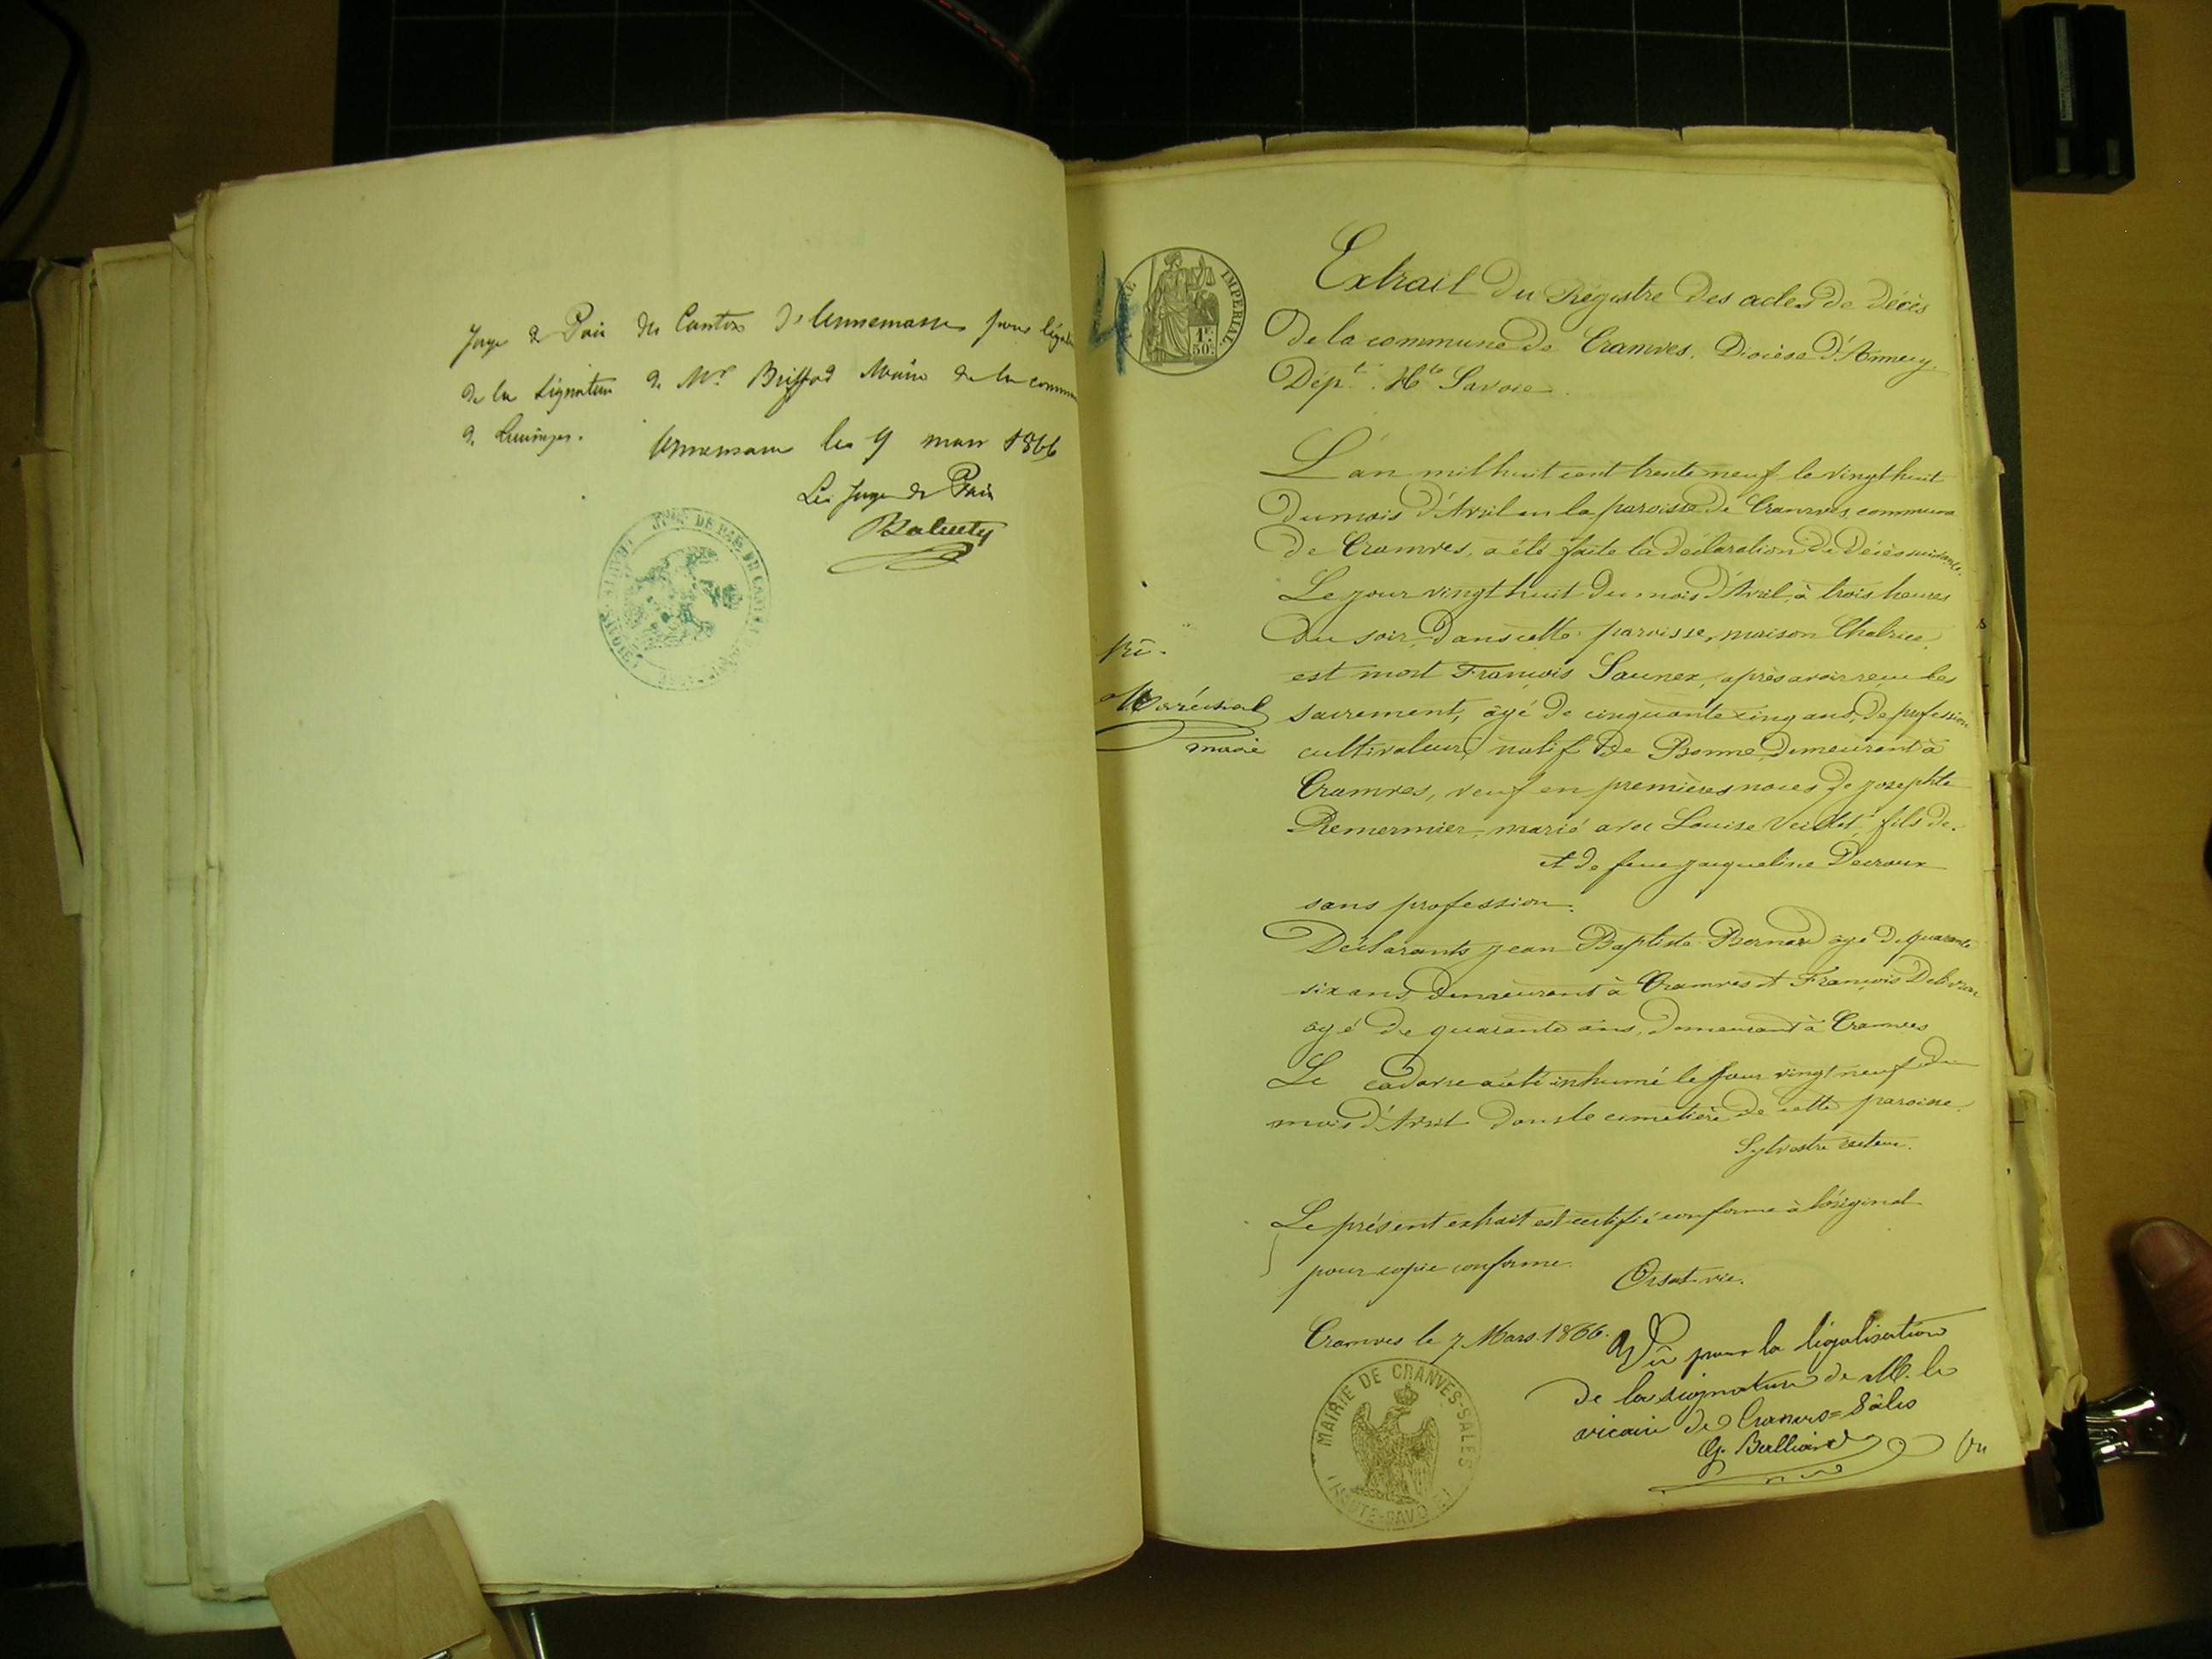 Juge de Paix du Canton d'Annemasse pour légal
de la signature de Mr. Briffod Maire de la commune
de Lucinges.
Annemasse le 9 mars 1866
Le Juge de Paix
TIMBRE IMPERIAL
1F 50c
4
Extrait du Régistre des actes de décès
de la commune de Cranves. Diocèse d'Annecy.
Dépt. Hte Savoie.
L'an mil huit cent trente neuf le vingt huit
du mois d'Avril en la paroisse de Cranves, commune
de Cranves, a été faite la déclaration de décès suivante.
Le jour vingt huit du mois d'Avril, à trois heures
du soir, dans cette paroisse, maison
est mort François Saunex, après avoir reçu les
sacrement, âgé de cinquante cinq ans, de profession
cultivateur, natif de Bonne, demeurant à
Cranves, veuf en premières noces de josephte
marié avec Louise fils de
et de feue jacqueline Decroux
sans profession.
Déclarants jean Baptiste Bernard âgé de quarante
six ans, demeurant à Cranves et François
âgé de quarante ans, demeurant à Cranves
Le cadavre a été inhumé le jour vingt neuf du
mois d'Avril dans le cimetière de cette paroisse.
Sylvestre recteur.
Le présent extrait est certifié conforme à l'original
pour copie conforme.
Orsat vic.
Cranves le 7 Mars 1866.
Vû pour la légalisation
de la signature de M. le
vicaire de Cranves=Sâles
MAIRIE DE CRANVES-SALES
(HAUTE-SAVOIE)
Maréchal
marie